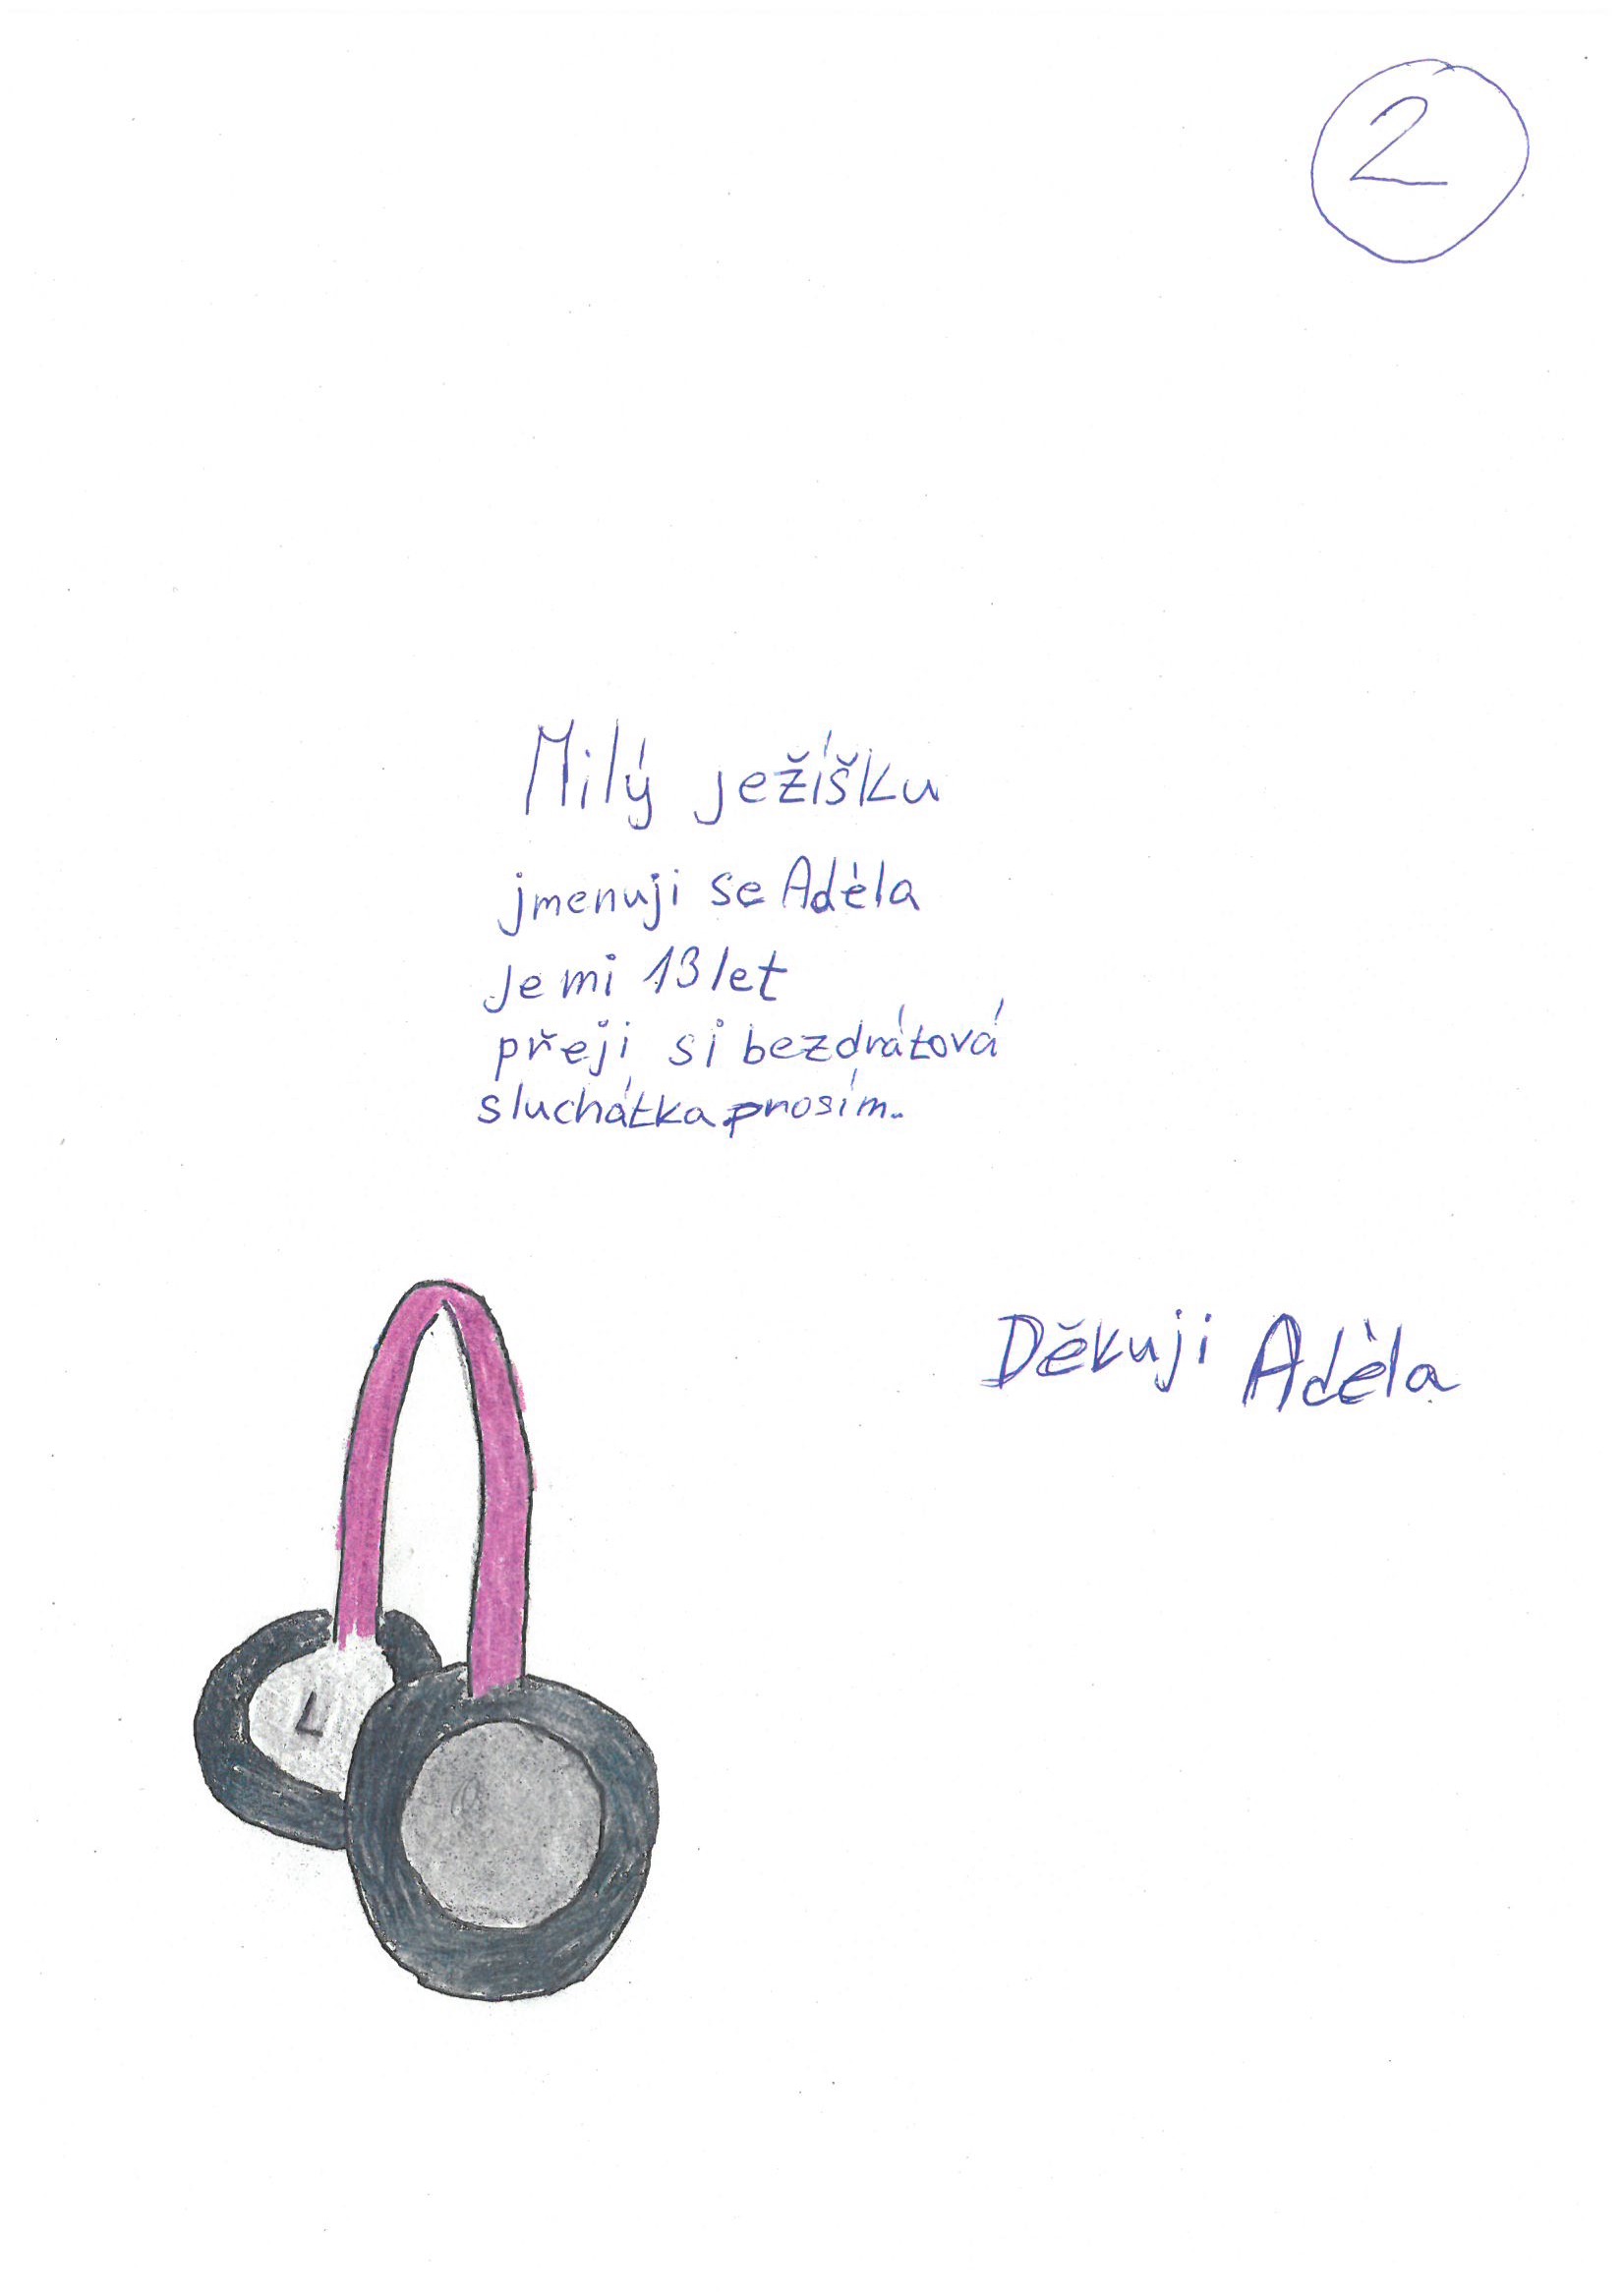 2
Milý ježíšku
jmenuji se Adéla
Je mi 13 let
přeji si bezdrátová
sluchátka prosím..
Děkuji Adéla
L